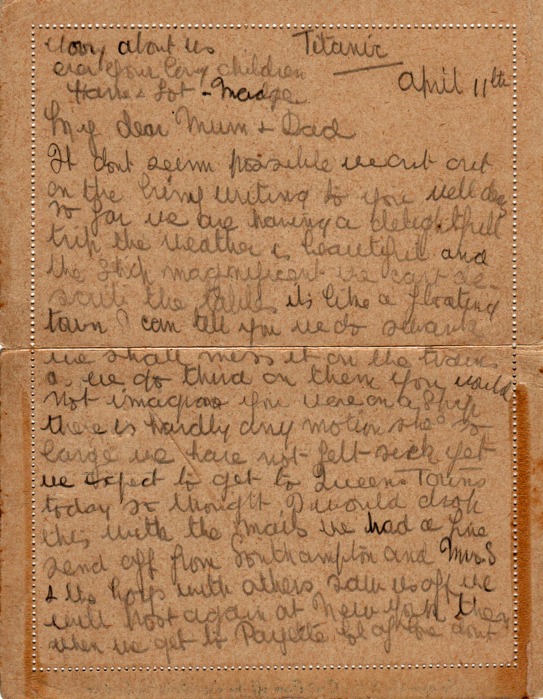 worry about us Titanic
ever your lovg children April 11th
Harvey Lot & Madge
My dear Mum & Dad
It dont seem possible we are out
on the briny writing to you well dears
so far we are having a delightfull
trip the weather is beautiful and
the ship magnificent we cant de-
scribe the tables it's like a floating
town I can tell you we do swank
we shall miss it on the trains
as we go third on them you would
not imagine you were on a ship
there is hardly any motion she is so
large we have not felt sick yet
we expect to get to Queens Town
today so thought I would drop
this with the mails we had a fine
send off from Southampton and Mrs S
& the boys with others saw us off we
will post again at New York then
when we get to Payette dont